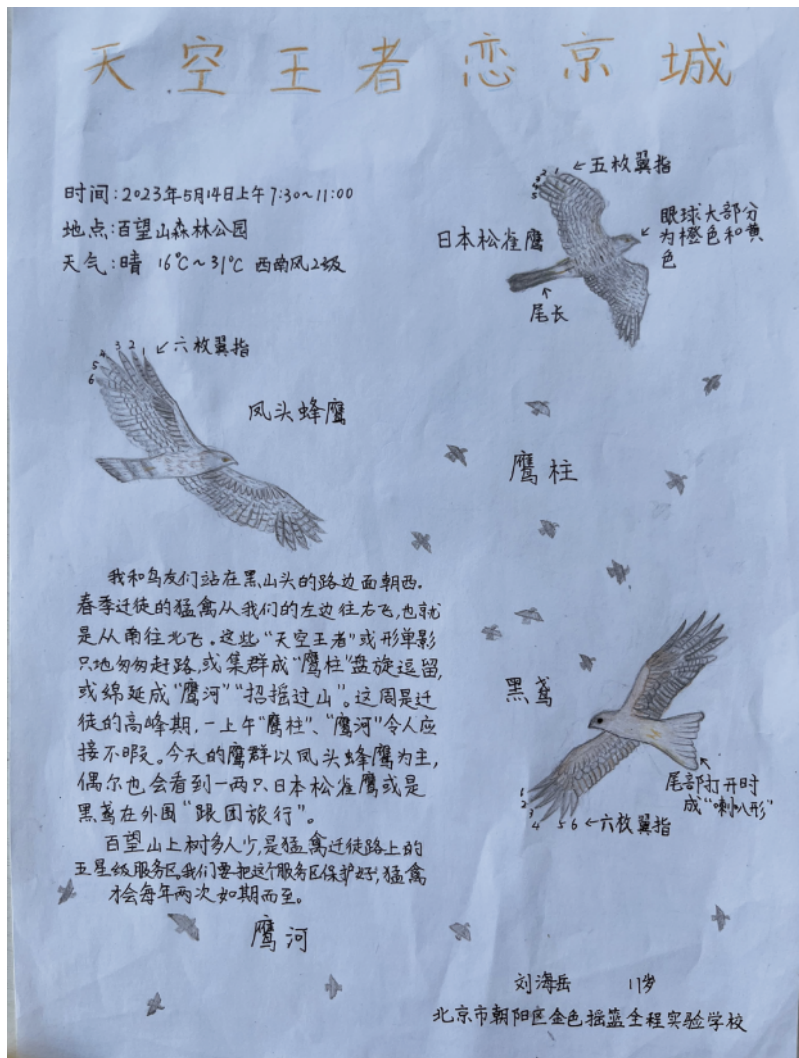 天空王者恋京城
时间:2023年5月14日上午7:30~11:00
地点:百望山森林公园
天气:晴 16℃~31℃ 西南风2级
1 2 3 4 5
←五枚翼指
日本松雀鹰
眼球大部分
为橙色和黄
色
尾长
1 2 3 4 5 6
六枚翼指
凤头蜂鹰
鹰柱
我和鸟友们站在黑山头的路边面朝西。
春季迁徙的猛禽从我们的左边往右飞,也就
是从南往北飞。这些“天空王者”或形单影
只地匆匆赶路,或集群成“鹰柱”盘旋逗留,
或绵延成“鹰河”“招摇过山”。这周是迁
徙的高峰期,一上午“鹰柱”、“鹰河”令人应
接不暇。今天的鹰群以凤头蜂鹰为主,
偶尔也会看到一两只日本松雀鹰或是
黑鸢在外围“跟团旅行”。
百望山上树多人少,是猛禽迁徙路上的
五星级服务区,我们要把这个服务区保护好,猛禽
才会每年两次如期而至。
黑鸢
尾部打开时
成“喇叭形”
1 2 3 4 5 6
←六枚翼指
鹰河
刘海岳 11岁
北京市朝阳区金色摇篮全程实验学校